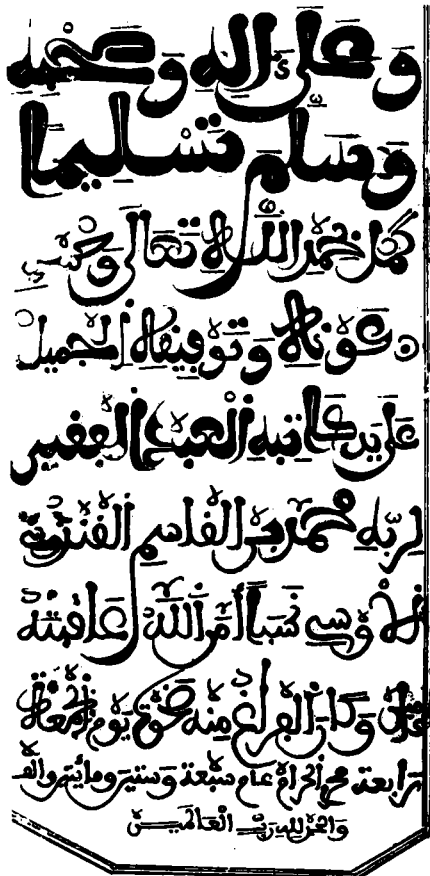 وعلى آله وصحبه
وسلم تسليما
كمل بحمد الله تعالى وحسن
عونه وتوفيقه الجميل
على يد كاتبه العبد الفقير
لربه محمد بن القاسم القندوسي
نسبا أمن الله عاقبته
ءامين وكان الفراغ منه ضحوة يوم الجمعة
رابعة محرم الحرام عام سبعة وستين ومائتين وألف
والحمد لله رب العالمين